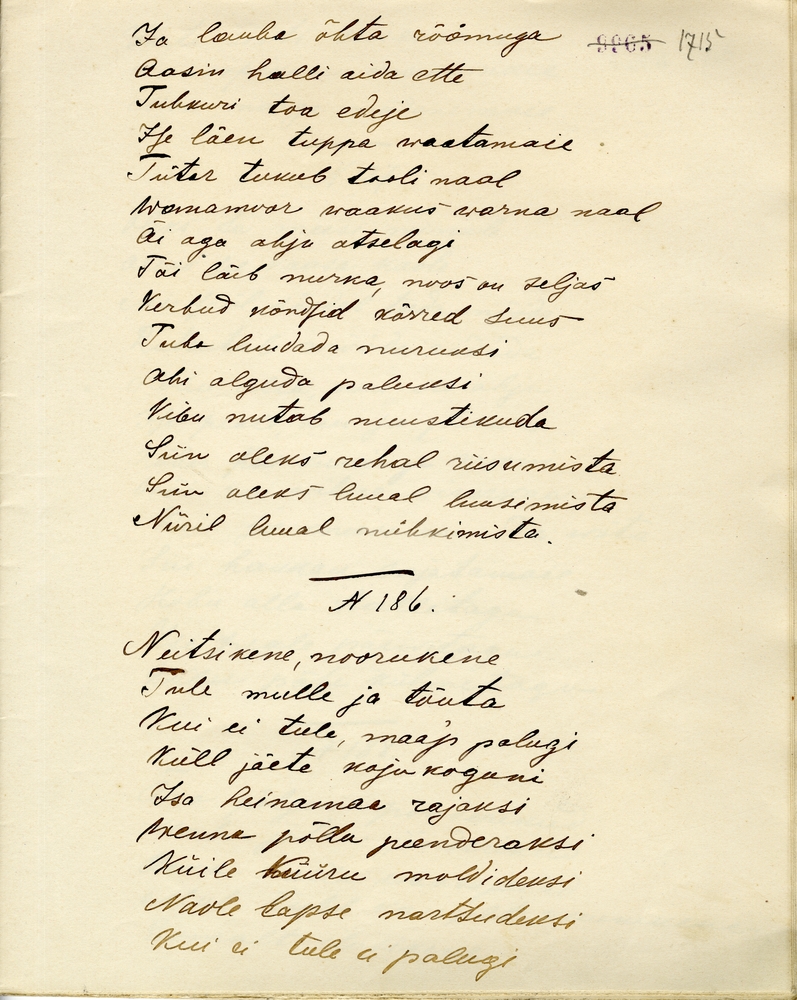 Ja lauba õhta röömuga 9965 1715
Aasin halli aida ette
Tuhkuri toa edeje
Ise läen tuppa waatamaie
Tütar tukub tooli naal
Wanamoor waakus warna naal
Äi aga ahju otselagi
Täi läib nurka, noos on seljas
Kerbud kõndsid kõrred suus
Tuba luudada nuruksi
Ahi alguda paluksi
Kibu nutab nuustikuda
Siin oleks rehal riisumista
Siin oleks luual luusimista
Nüril luual nühkimista.
N 186.
Neitsikene, noorukene
Tule mulle ja tõuta
Kui ei tule, maap palugi
Küll jäete koju koguni
Isa heinamaa rajaksi
Wenna põllu peenderaksi
Küile küüru moldideksi
Naole lapse nartsudeksi
Kui ei tule ei palugi